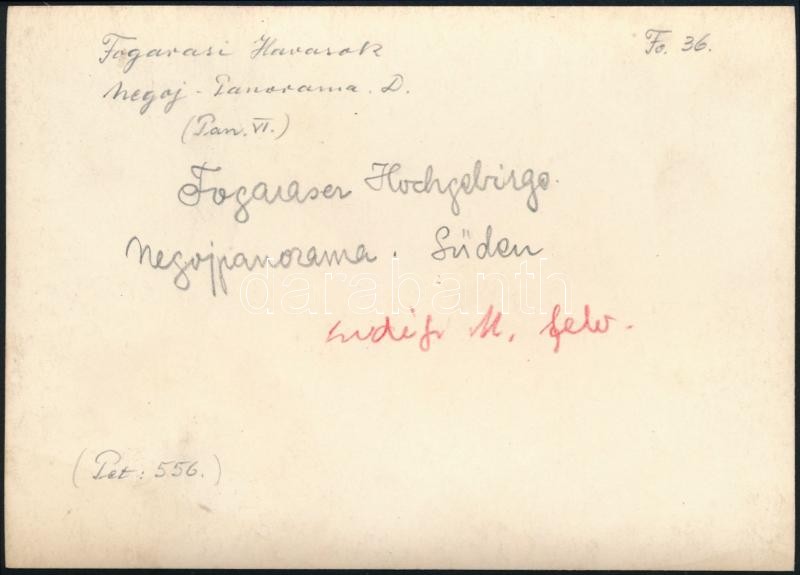 Fogarasi Havasok
Fo. 36.
Negoj - Panorama. D.
(Pan. VI.)
Fogaraser Hochgebirge.
Negojpanorama. Süden
darabanth
M. felv.
(Pet: 556.)